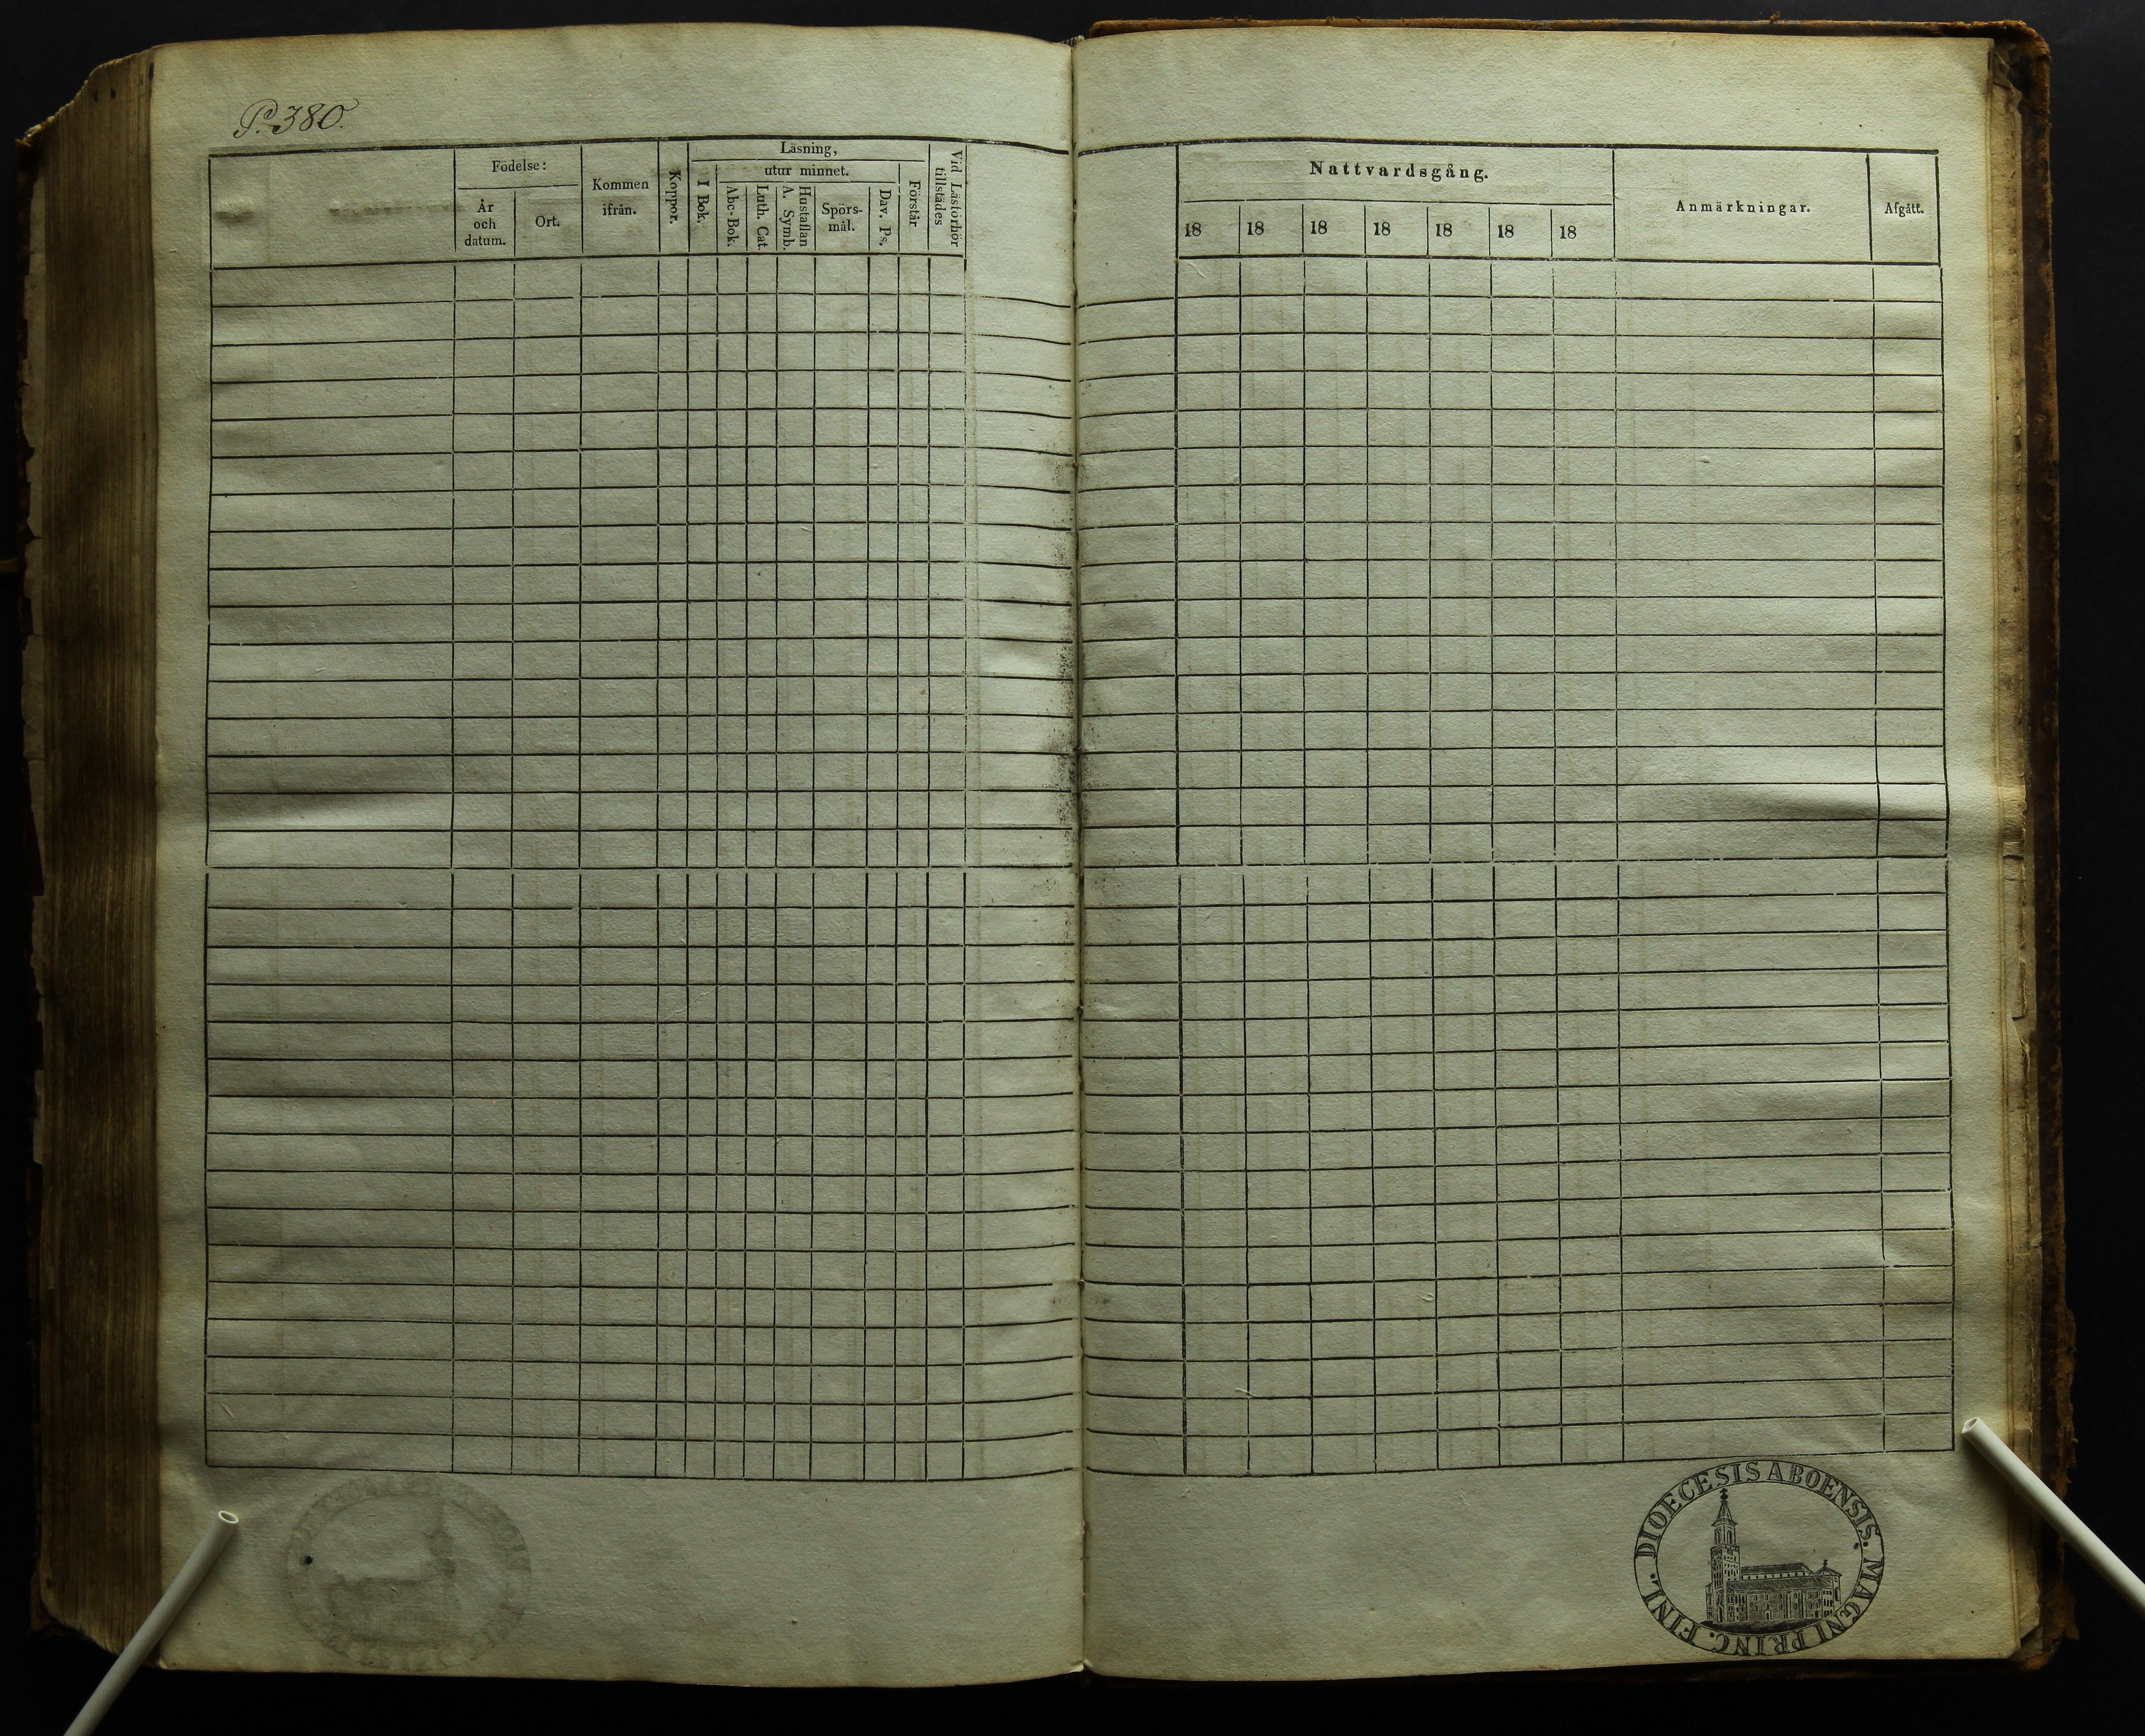 P. 380.
Födelse:
År
och
datum.
Ort.
Kommen
ifrån.
Koppor.
Läsning,
utur minnet.
I Bok.
Abc-Bok.
Luth. Cat.
Hustaflan
A. Symb.
Spörs-
mål.
Dav. Ps.
Förstår
Vid Läsförhör
tillstädes
Nattvardsgång.
18 18 18 18 18 18 18
Anmärkningar.
Afgått.
DIOECESIS ABOENSIS. MAGNI PRINC. FINL.